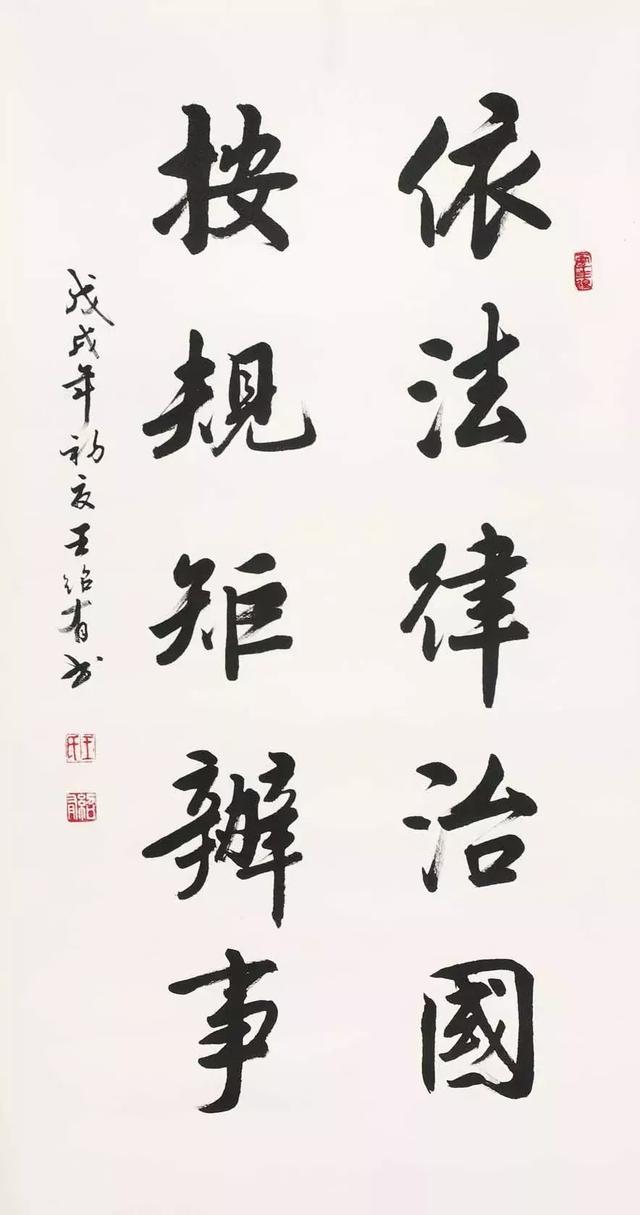 依法律治國
按規矩辦事
戊戌年初夏王紹有书
王氏
紹有